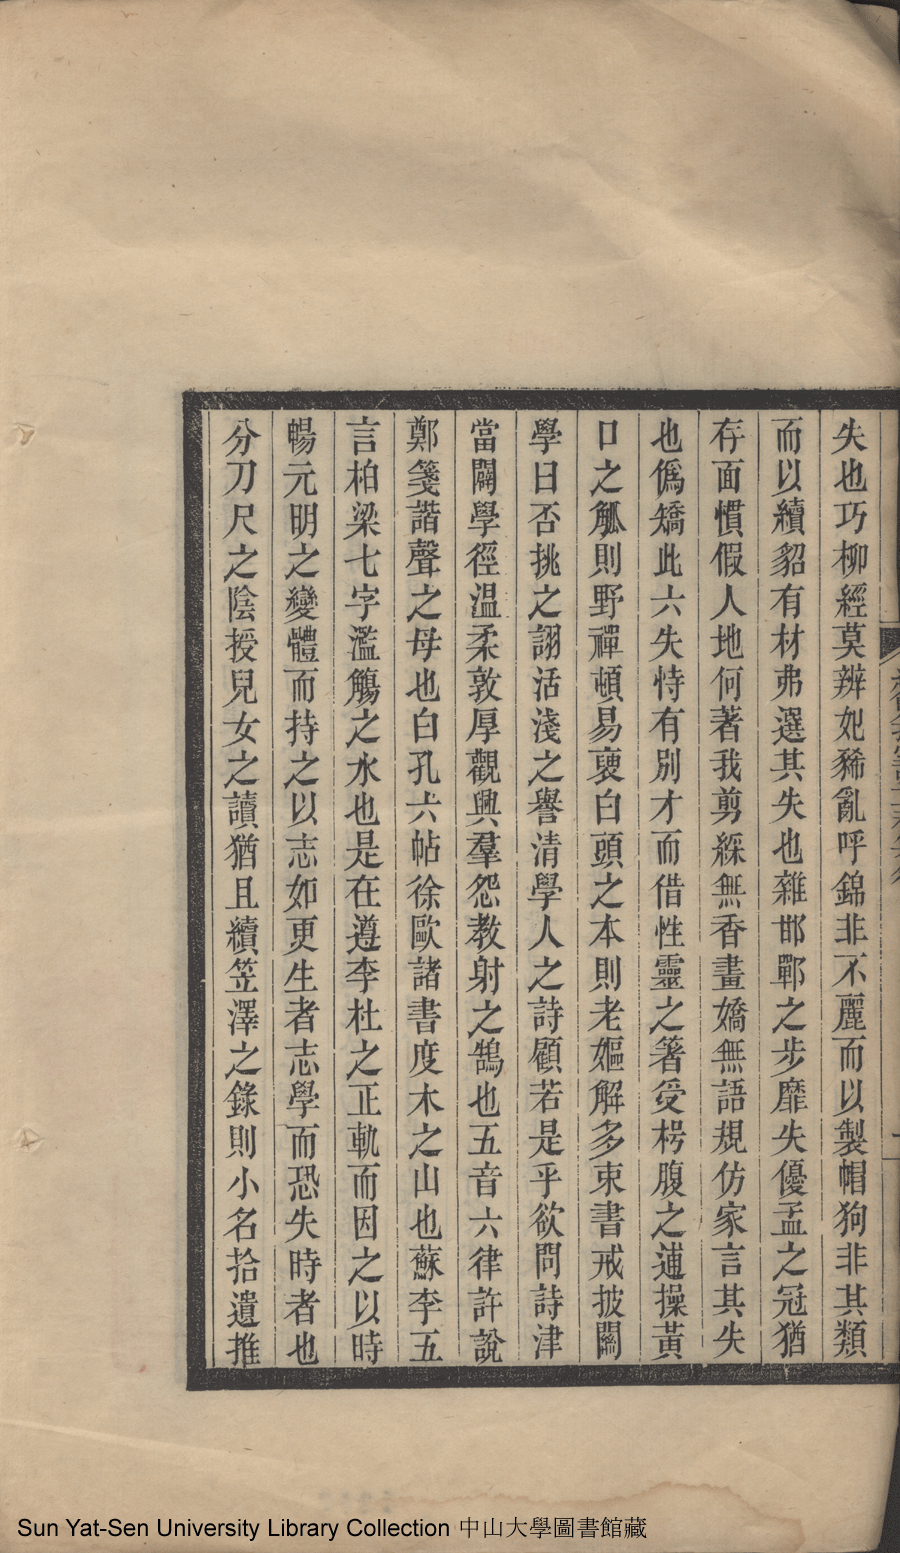 失也巧柳經莫辨妃豨亂呼錦非不麗而以製帽狗非其類
而以續貂有材弗選其失也雜邯鄲之步靡失優孟之冠猶
存面慣假人地何著我剪綵無香畫嬌無語規仿家言其失
也僞矯此六失恃有別才而借性靈之箸受枵腹之逋操黃
口之觚則野禪頓易褏白頭之本則老嫗解多束書戒披闔
學曰否挑之謝活淺之譽清學人之詩顧若是乎欲問詩津
當闢學徑温柔敦厚觀興羣怨教射之鵠也五音六律許說
鄭箋諧聲之母也白孔六帖徐歐諸書度木之山也蘇李五
言柏梁七字濫觴之水也是在遵李杜之正軌而因之以時
暢元明之變體而持之以志如更生者志學而恐失時者也
分刀尺之陰授兒女之讀猶且續笠澤之錄則小名拾遺推
Sun Yat-Sen University Library Collection 中山大學圖書館藏